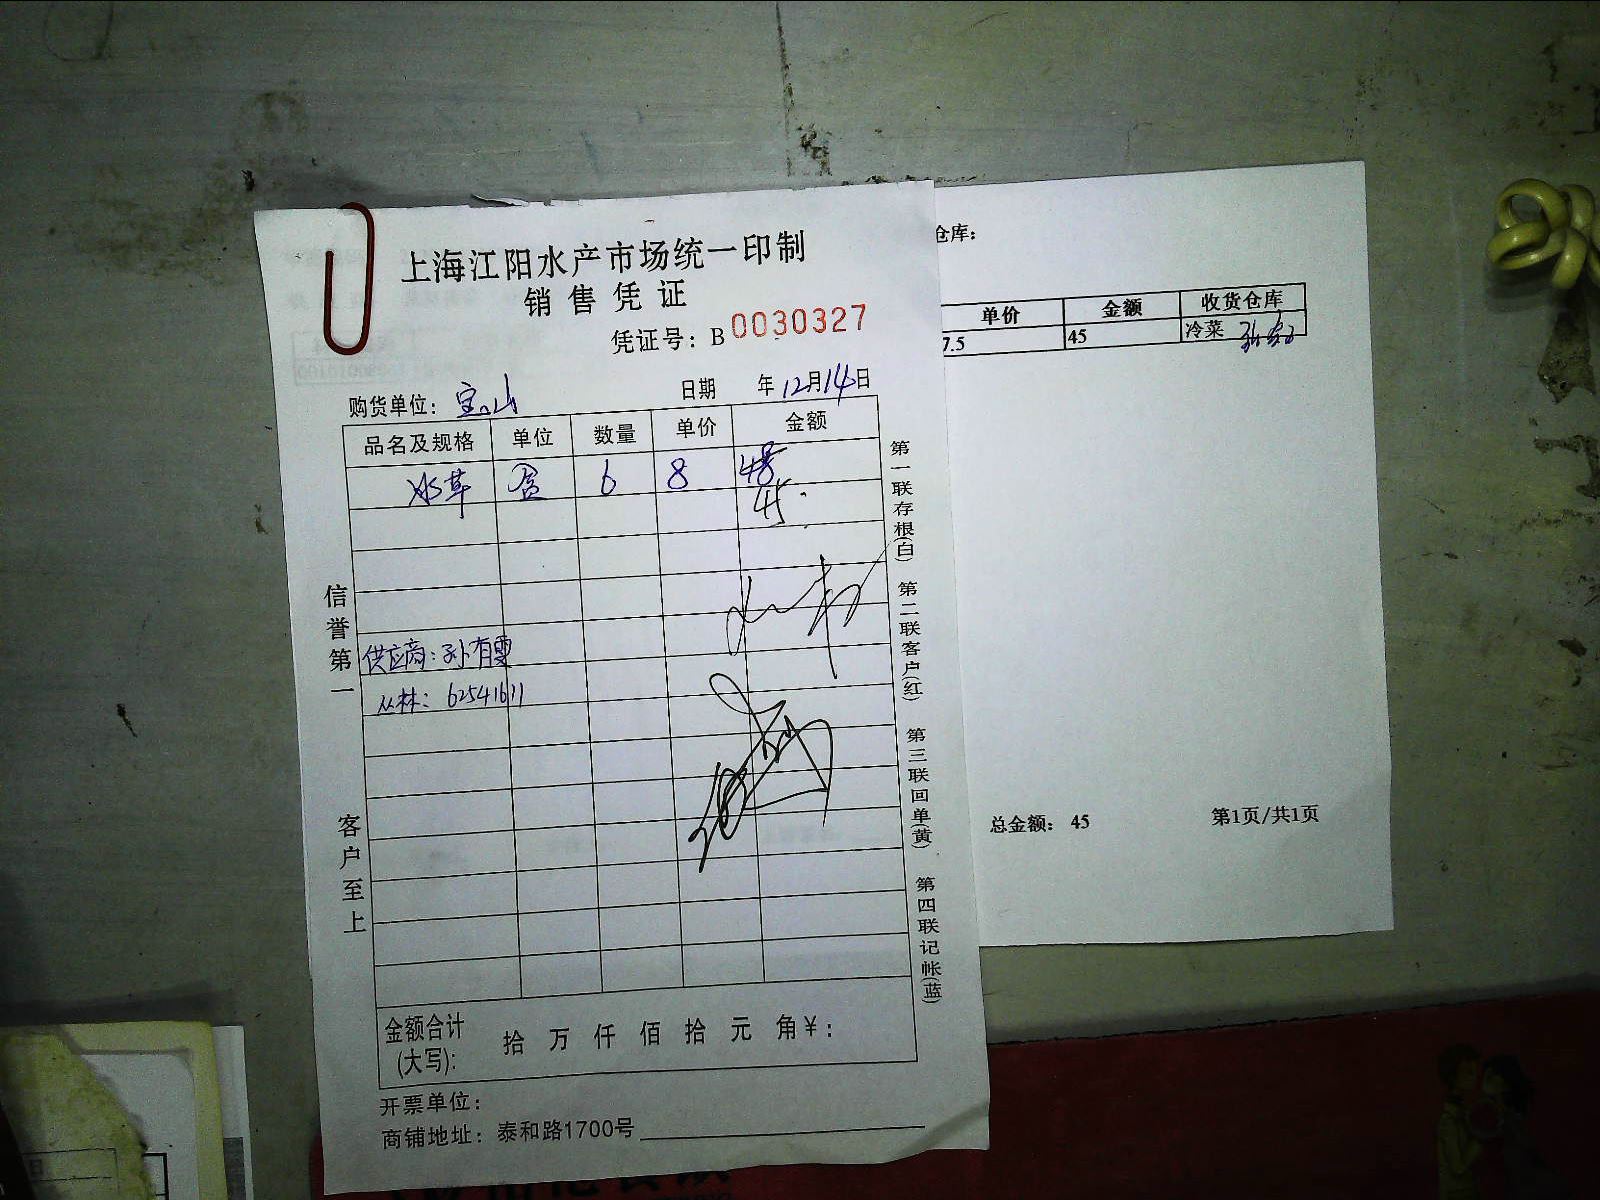 上海江阳水产市场统一印制
销售凭证
凭证号：B 0030327
购货单位：宝山 日期 年12月14日
品名及规格 单位 数量 单价 金额
冰草 盒 6 8 48
45
供应商：孙有雯
丛林：62541611
信誉第一
客户至上
第一联存根(白) 第二联客户(红) 第三联回单(黄) 第四联记帐(蓝)
金额合计(大写)： 拾 万 仟 佰 拾 元 角￥：
开票单位：
商铺地址：泰和路1700号
仓库：
单价 金额 收货仓库
7.5 45 冷菜
总金额： 45 第1页/共1页